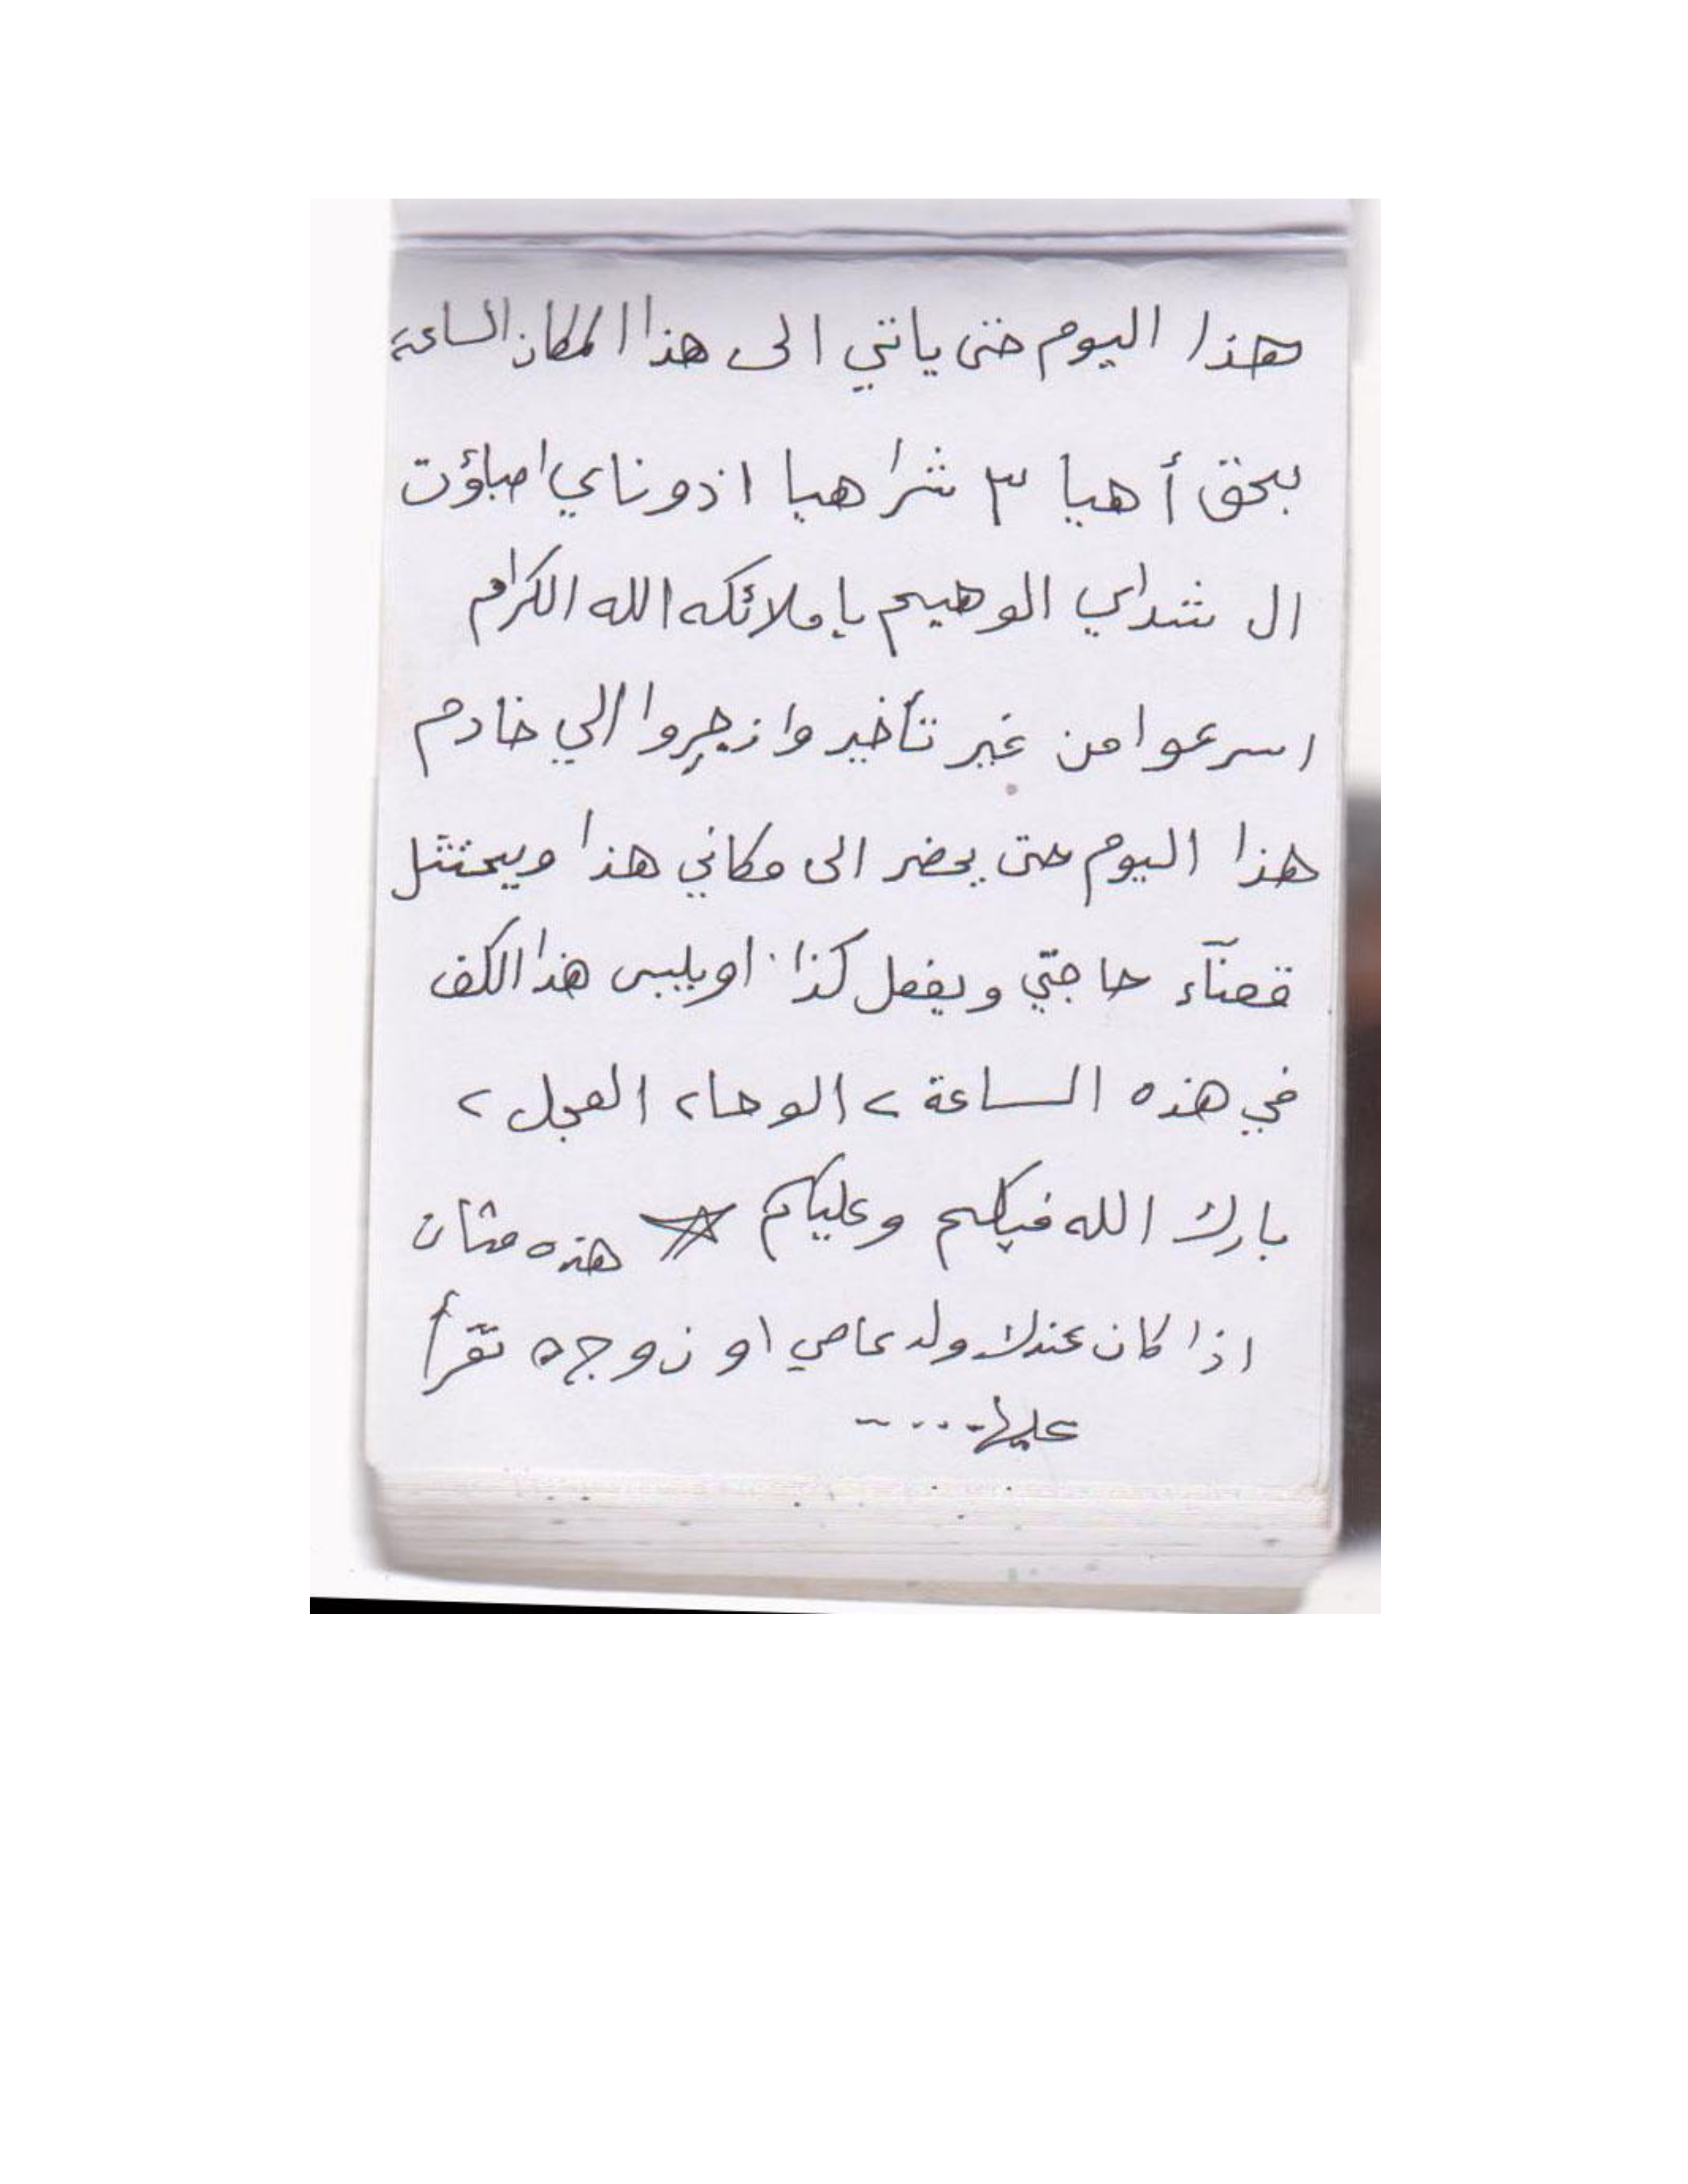 هذا اليوم حتى ياتي الى هذا المكان الساعه
بحق أهيا ٣ شراهيا اذوناي اصباؤت
ال شداي الوهيم يا ملائكه الله الكرام
اسرعوا من غير تأخير وازجروا الي خادم
هذا اليوم حتى يحضر الى مكاني هذا ويمتثل
قضآء حاجتي ويفعل كذا اويلبس هذا الكف
في هذه الساعة > الوحا ٢ العجل ٢
بارك الله فيكم وعليكم ☆ هذه مثان
اذا كان عندك ولد عاصي او زوجه تقرأ
عليها....